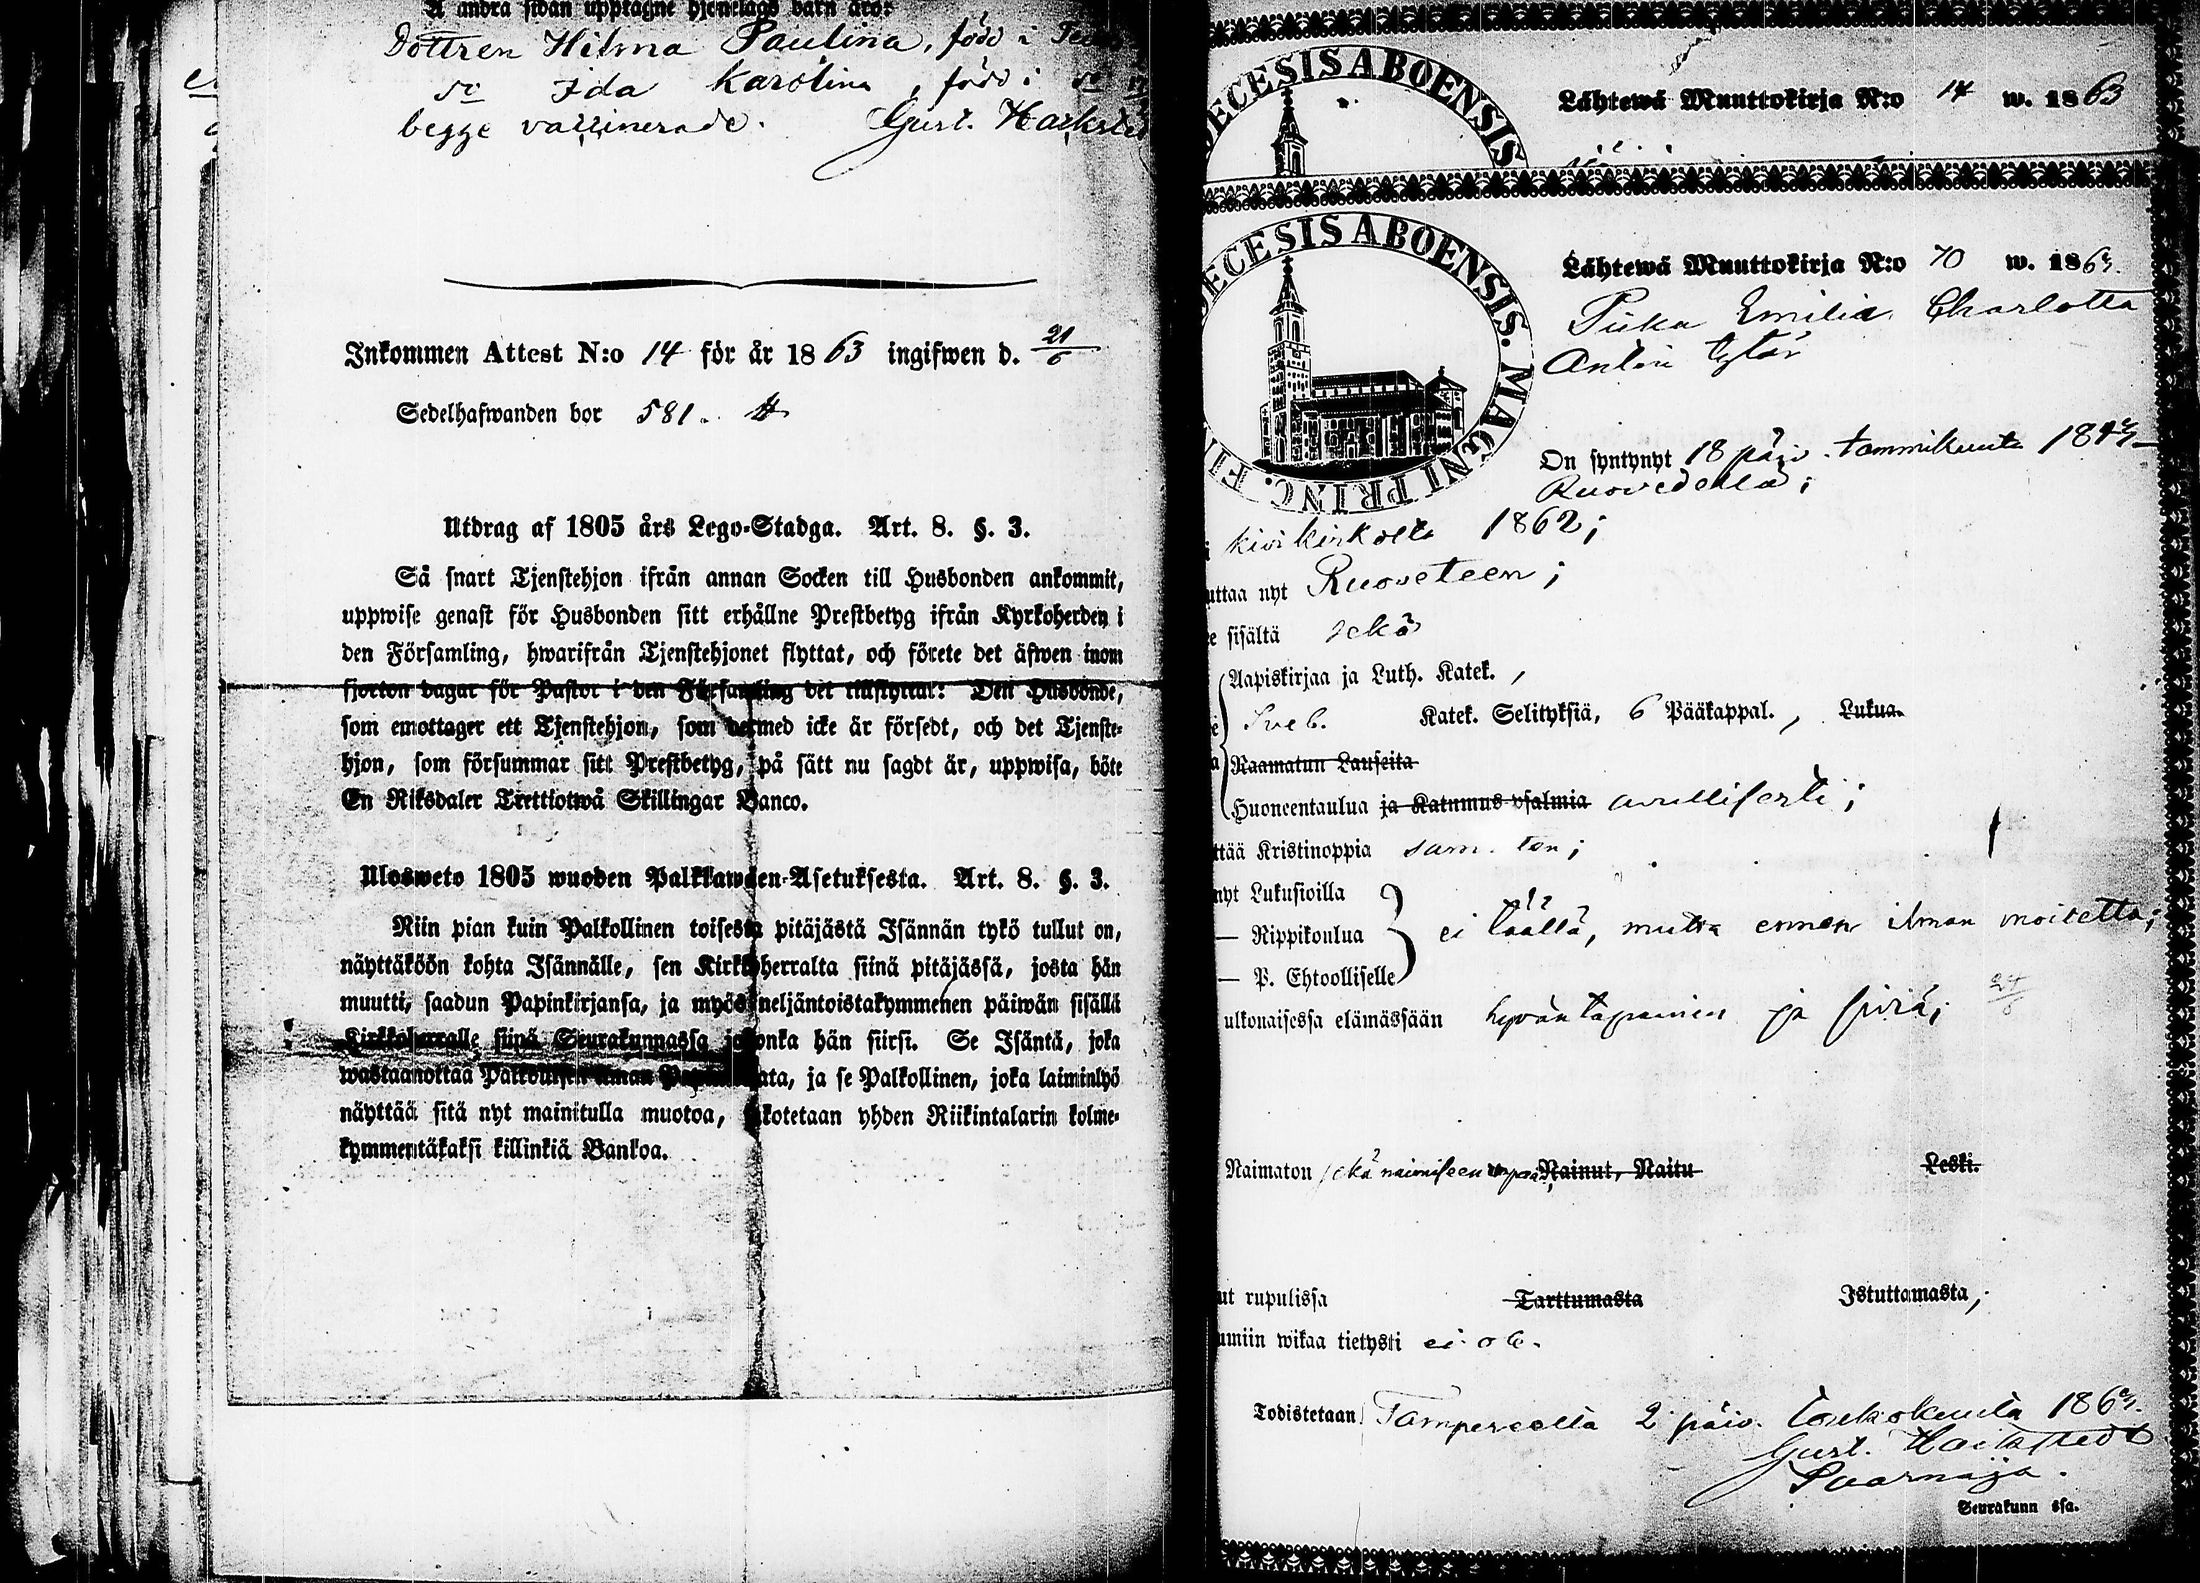 Å andra sidan upptagne hjonelags barn äro:
Dottren Hilma Paulina, född i
do Ida Karolina, född i do
begge vaccinerade. Gust. Hackstedt
Inkommen Attest N:o 14 för år 1863 ingifwen d. 21/6
Sedelhafwanden bor 581.
Utdrag af 1805 års Lego-Stadga. Art. 8. §. 3.
Så snart Tjenstehjon ifrån annan Socken till Husbonden ankommit,
uppwise genast för Husbonden sitt erhållne Prestbetyg ifrån Kyrkoherden i
den Församling, hwarifrån Tjenstehjonet flyttat, och förete det äfwen inom
fjorton dagar för Pastor i den Församling det tillflyttat: Den Husbonde,
som emottager ett Tjenstehjon, som dermed icke är försedt, och det Tjenste-
hjon, som försummar sitt Prestbetyg, på sätt nu sagdt är, uppwisa, böte
En Riksdaler Trettiotwå Skillingar Banco.
Ulosweto 1805 wuoden Palkkawäen-Asetuksesta. Art. 8. §. 3.
Niin pian kuin Palkollinen toisesta pitäjästä Isännän tykö tullut on,
näyttäköön kohta Isännälle, sen Kirkkoherralta siinä pitäjässä, josta hän
muutti, saadun Papinkirjansa, ja myös neljäntoistakymmenen päiwän sisällä
Kirkkoherralle siinä Seurakunnassa johonka hän siirsi. Se Isäntä, joka
wastaanottaa Palkollisen ilman Papinkirjata, ja se Palkollinen, joka laiminlyö
näyttää sitä nyt mainitulla muotoa, sakotetaan yhden Riikintalarin kolme-
kymmentäkaksi killinkiä Bankoa.
DECESIS ABOENSIS
Lähtewä Muuttokirja N:o 14 w. 1863
DECESIS ABOENSIS. MAGNI PRINC. FI
Lähtewä Muuttokirja N:o 70 w. 1863.
Piika Emilia Charlotta
Antin tytär
On syntynyt 18 päiv. tammikuuta
Ruovedellä;
kivikirkolta 1862;
uttaa nyt Ruoveteen;
e sisältä sekä
Aapiskirjaa ja Luth. Katek.,
Sveb. Katek. Selityksiä, 6 Pääkappal., Lukua.
Raamatun Lauseita
Huoneentaulua ja Katumus-psalmia awullisesti;
ttää Kristinoppia sam. ton;
nyt Lukusioilla
— Rippikoulua ei täällä, mutta ennen ilman moitetta;
— P. Ehtoolliselle
ulkonaisessa elämässään hyväntapainen ja siviä;
Naimaton sekä naimiseen vapaa; Nainut, Naitu Leski.
ut rupulissa Tarttumasta Istuttamasta,
umiin wikaa tietysti ei ole.
Todistetaan Tampereella 2 päiv. toukokuuta 1863.
Gust. Hackstedt
Saarnaja.
Seurakunn ssa.